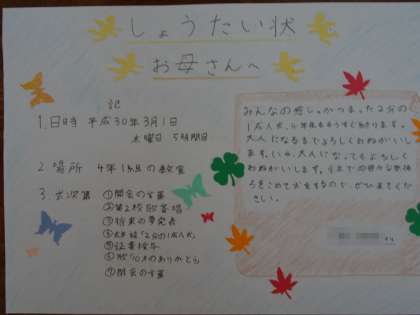 しょうたい状
お母さんへ
記
1.日時 平成30年3月1日
木曜日 5時間目
2.場所 4年1組の教室
3.式次第 ①開会の言葉
②第2校歌斉唱
③将来の夢発表
④
⑤証書授与
⑥歌「10才のありがとう」
⑦閉会の言葉
みんなの感しゃがつまった2分の
1成人式。
大人になるまでよろしくおねがいし
ます。いや、大人になってもよろしく
おねがいします。今までの色々な気持
ちをこめて式をするので、ぜひ来てくだ
さい。
より